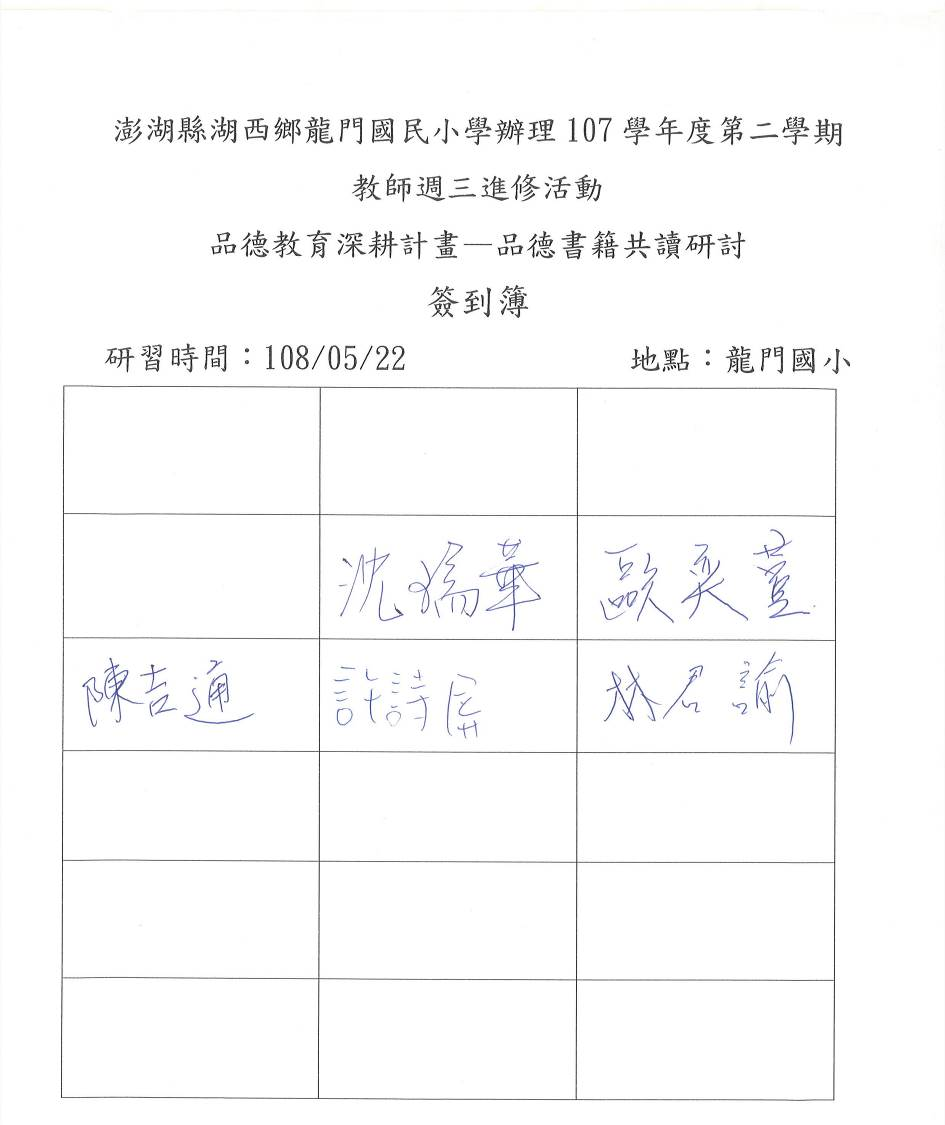 澎湖縣湖西鄉龍門國民小學辦理107學年度第二學期
教師週三進修活動
品德教育深耕計畫—品德書籍共讀研討
簽到簿
研習時間：108/05/22 地點：龍門國小
沈華 歐奕
陳吉通 許詩屏 林君諭